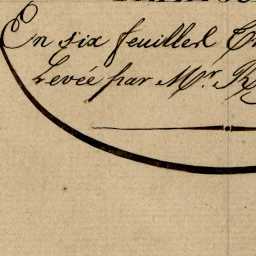 En six feuilles,
Levée par Mr.